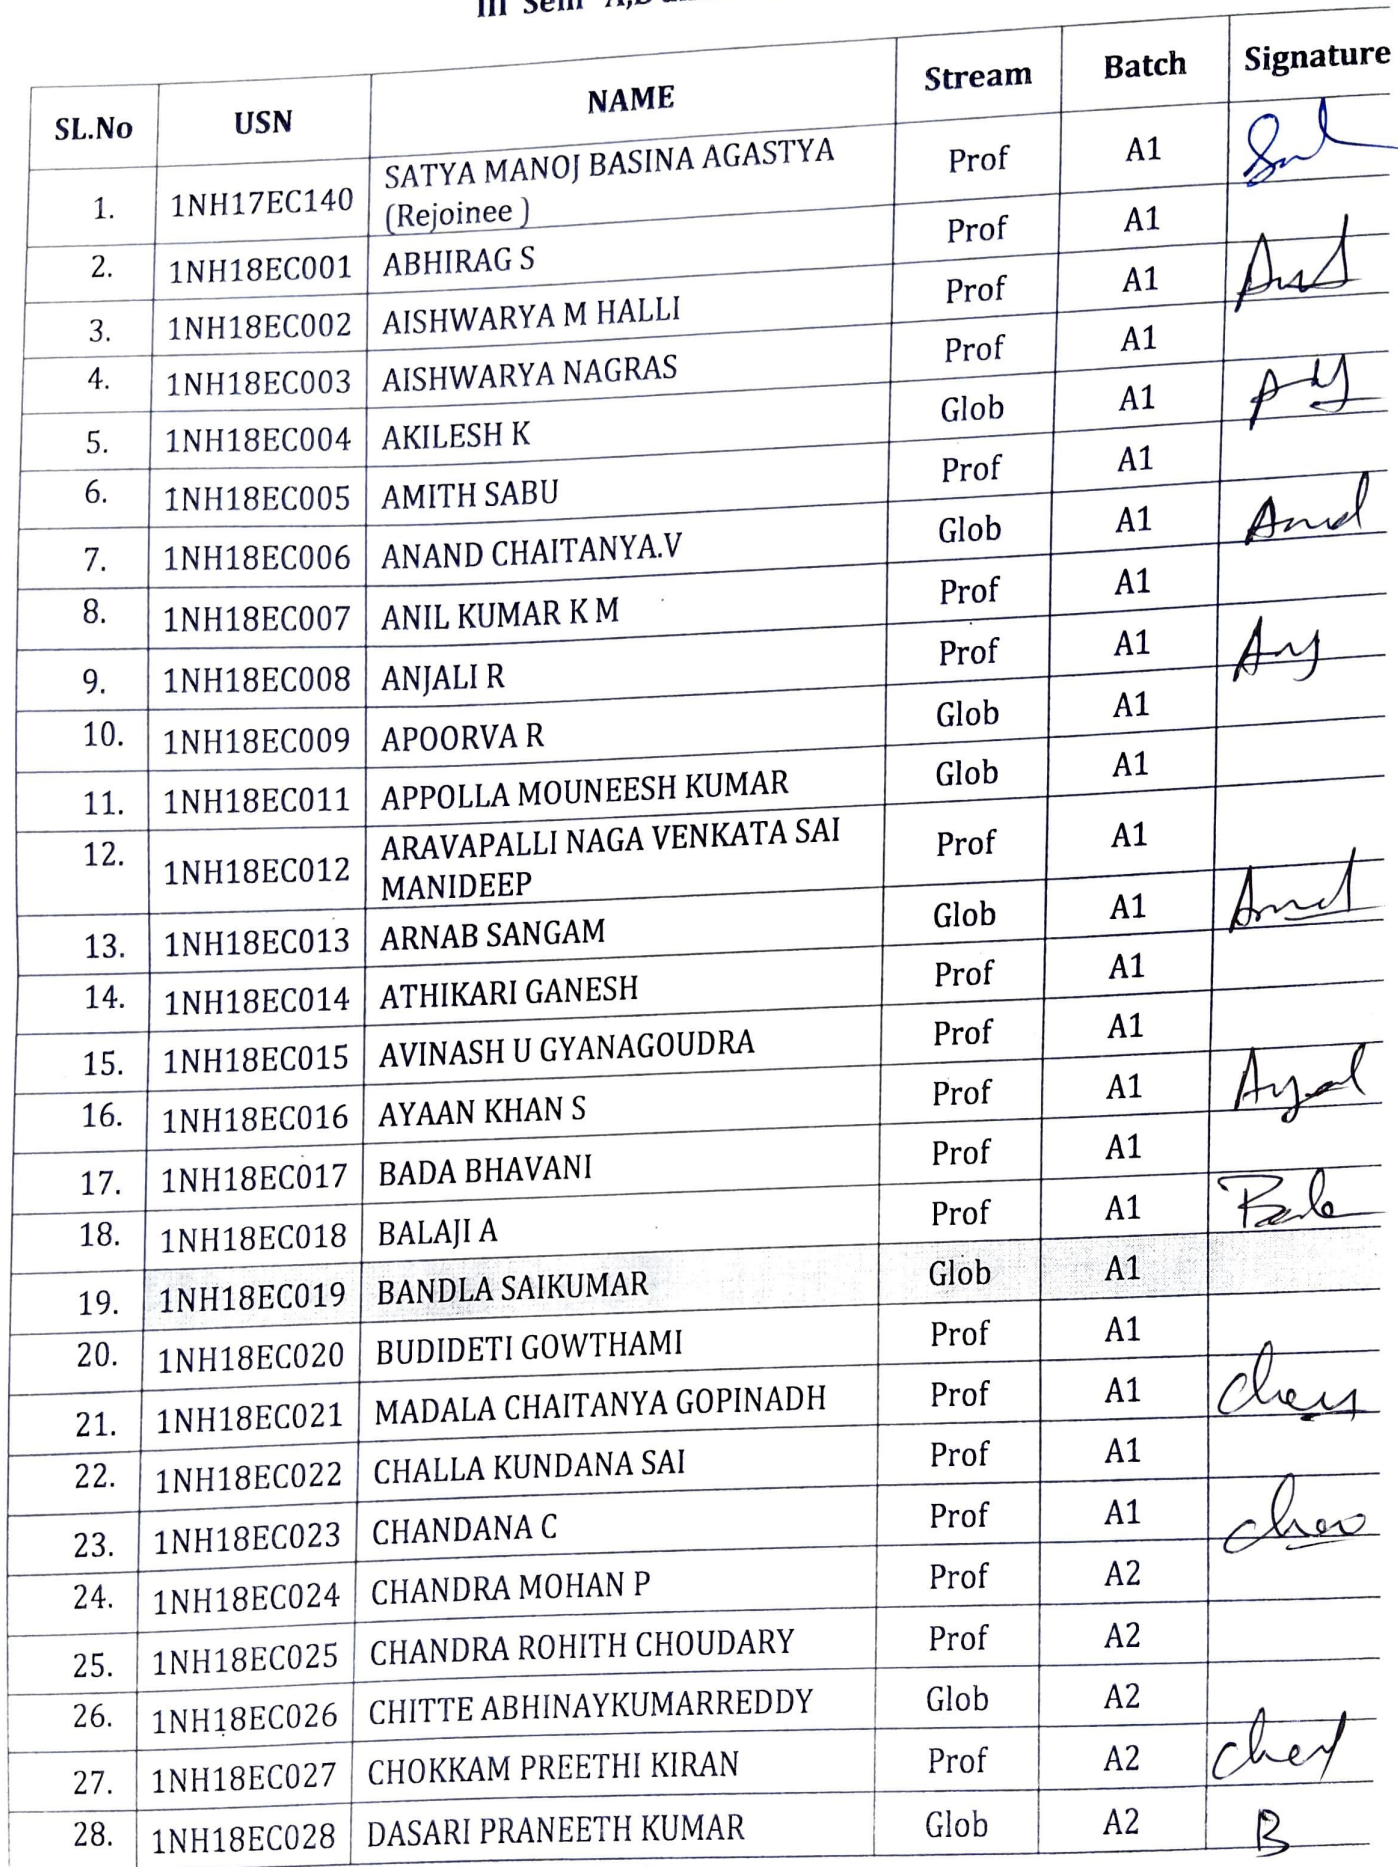 III Sem
SL.No USN NAME Stream Batch Signature
1. 1NH17EC140 SATYA MANOJ BASINA AGASTYA Prof A1
(Rejoinee )
2. 1NH18EC001 ABHIRAG S Prof A1
3. 1NH18EC002 AISHWARYA M HALLI Prof A1
4. 1NH18EC003 AISHWARYA NAGRAS Prof A1
5. 1NH18EC004 AKILESH K Glob A1
6. 1NH18EC005 AMITH SABU Prof A1
7. 1NH18EC006 ANAND CHAITANYA.V Glob A1
8. 1NH18EC007 ANIL KUMAR K M Prof A1
9. 1NH18EC008 ANJALI R Prof A1
10. 1NH18EC009 APOORVA R Glob A1
11. 1NH18EC011 APPOLLA MOUNEESH KUMAR Glob A1
12. 1NH18EC012 ARAVAPALLI NAGA VENKATA SAI Prof A1
MANIDEEP
13. 1NH18EC013 ARNAB SANGAM Glob A1
14. 1NH18EC014 ATHIKARI GANESH Prof A1
15. 1NH18EC015 AVINASH U GYANAGOUDRA Prof A1
16. 1NH18EC016 AYAAN KHAN S Prof A1
17. 1NH18EC017 BADA BHAVANI Prof A1
18. 1NH18EC018 BALAJI A Prof A1
19. 1NH18EC019 BANDLA SAIKUMAR Glob A1
20. 1NH18EC020 BUDIDETI GOWTHAMI Prof A1
21. 1NH18EC021 MADALA CHAITANYA GOPINADH Prof A1
22. 1NH18EC022 CHALLA KUNDANA SAI Prof A1
23. 1NH18EC023 CHANDANA C Prof A1
24. 1NH18EC024 CHANDRA MOHAN P Prof A2
25. 1NH18EC025 CHANDRA ROHITH CHOUDARY Prof A2
26. 1NH18EC026 CHITTE ABHINAYKUMARREDDY Glob A2
27. 1NH18EC027 CHOKKAM PREETHI KIRAN Prof A2
28. 1NH18EC028 DASARI PRANEETH KUMAR Glob A2 B